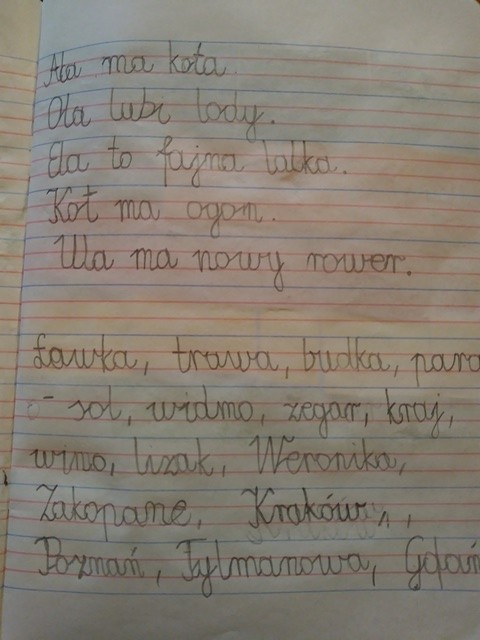 Ala ma kota.
Ola lubi lody.
Ela to fajna lalka.
Kot ma ogon.
Ula ma nowy rower.
Ławka, trawa, budka, para
- sol, widmo, zegar, kraj,
wino, lizak, Weronika,
Zakopane, Kraków,
Poznań, Tylmanowa, Gdań